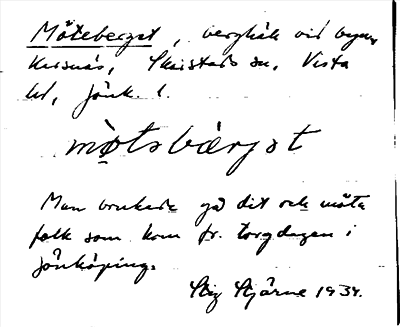 Möteberget, berghäll vid byn,
Kusnäs, Skärstads sn, Vista
hd, Jönk. l.
mö̀tsbärjət
Man brukade gå dit och möta
folk som kom fr. torgdagen i
Jönköping.
Stig Stjärne 1934.